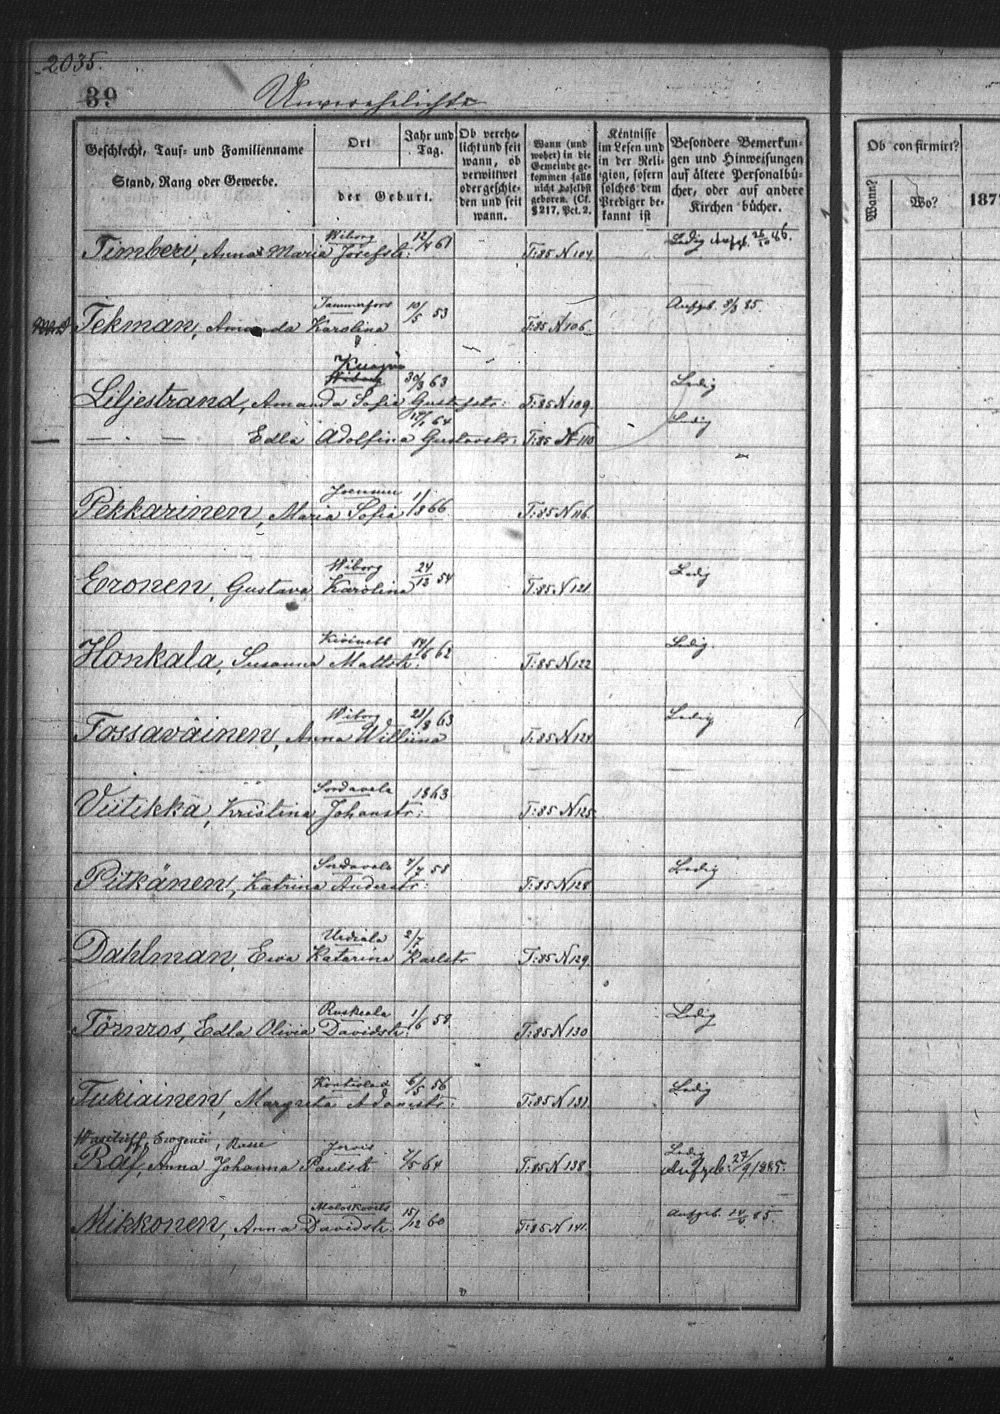 2035.
39
Unverehelichte
Geschlecht, Tauf- und Familienname
Stand, Rang oder Gewerbe.
Ort
Jahr und Tag.
der Geburt.
Ob verehelicht und seit wann, ob verwittwet oder geschieden und seit wann.
Wann (und woher) in die Gemeinde gekommen falls nicht daselbst geboren. (Cf. § 217, Pct. 2.
Kentnisse im Lesen und in der Religion, sofern solches dem Prediger bekannt ist
Besondere Bemerkungen und Hinweisungen auf ältere Personalbücher, oder auf andere Kirchenbücher.
Ob confirmirt?
Wann?
Wo?
187
Wiborg 12/4 61 Ledig Aufgb. 26/10 86.
Timberi, Anna Maria Josefstr: T:85 N 104
Tammerfors 10/5 53 Aufgb. 8/3 85
Tekman, Amanda Karolina T:85 N 106
Kuopio
Wiborg 30/3 63 Ledig
Liljestrand, Amanda Sofia Gustafstr: T:85 N 109
64 Ledig
— . — . Edla Adolfina Gustavstr: T:85 N 110
Joensuu 1/8 66
Pekkarinen, Maria Sofia T:85 N 116.
Wiborg 24/12 54 Ledig
Eronen, Gustava Karolina T:85 N 121
Kivinebb 14/6 62 Ledig.
Honkala, Susanna Mattstr: T:85 N 122
Wiborg 21/8 63 Ledig
Tossavainen, Anna Willina T:85 N 124
Sordavala 1863
Viitikka, Kristina Johanstr: T:85 N 125
Sordavala 4/7 58 Ledig
Pitkänen, Katrina Anderstr: T:85 N 128
Urdiala 2/7
Dahlman, Ewa Katarina Karlstr T:85 N 129.
Ruskeala 1/6 58 Ledig
Törnros, Edla Olivia Davidstr: T:85 N 130
Kontiolad 6/5 56 Ledig
Tukiainen, Margreta Adamstr: T:85 N 131
Wasilieff, Ewgenii, Russe Jorois Ledig
Räf, Anna Johanna Paulstr /5 64 T:85 N 138 Aufgeb: 27/9 1885.
15/12 60 Aufgb. 14/ 85.
Mikkonen, Anna Davidstr. T:85 N 141.